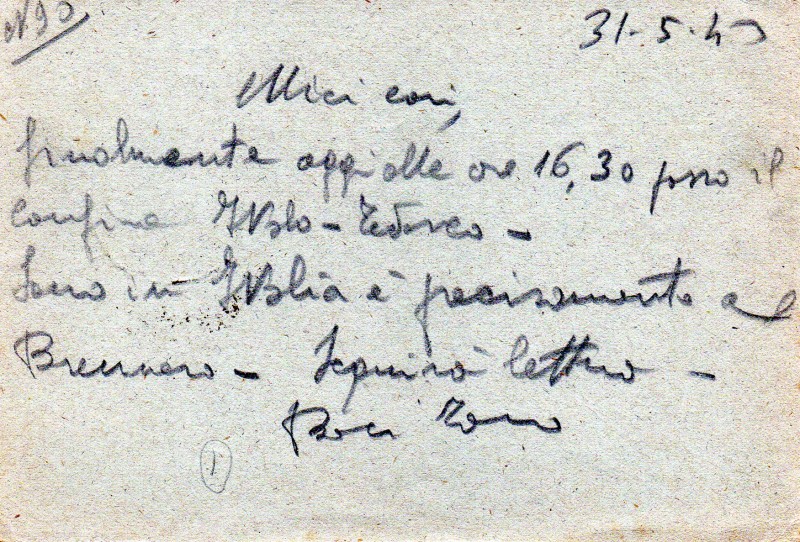 N 90
31-5-43
Miei cari,
finalmente oggi alle ore 16,30 passo il
confine Italo-Tedesco -
Sono in Italia e precisamente al
Brennero - Seguirà lettera -
Baci
1